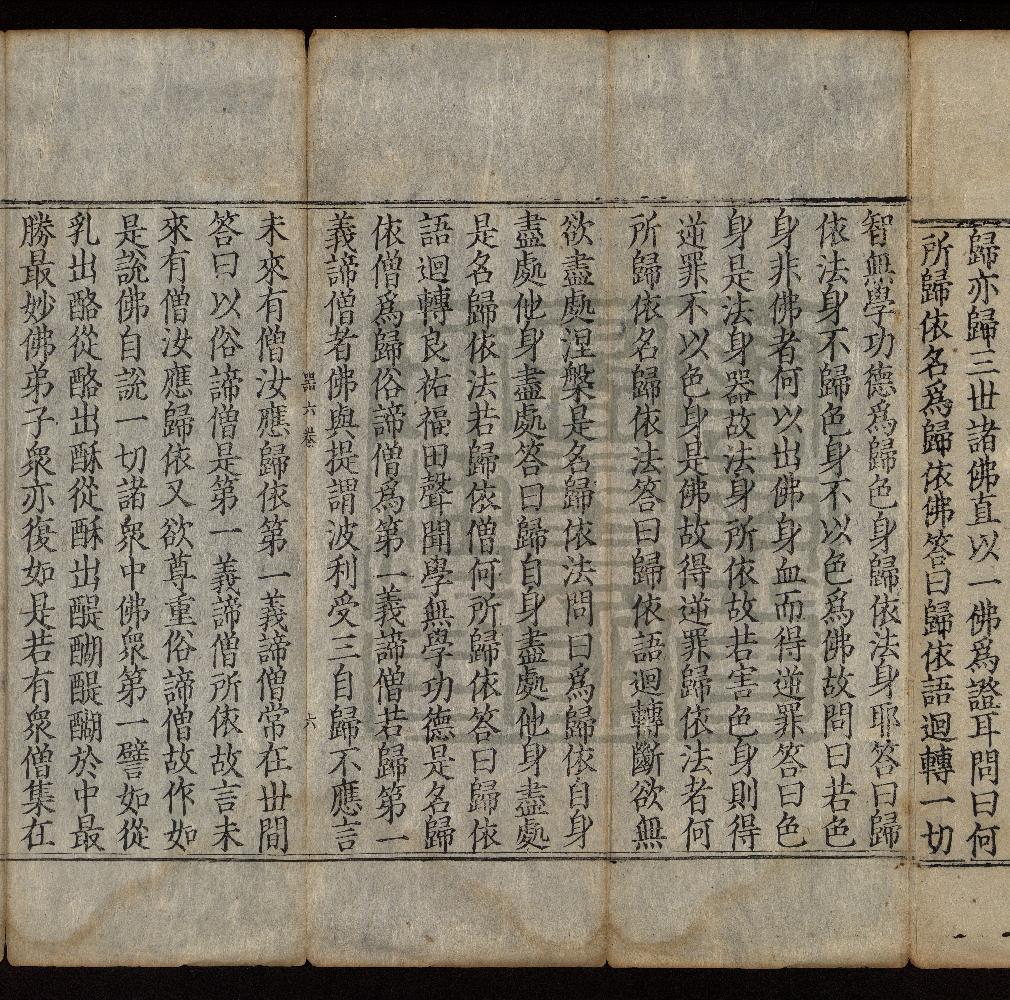 歸亦歸三世諸佛直以一佛爲證耳問曰何
所歸依名爲歸依佛答曰歸依語迴轉一切
智無學功德爲歸色身歸依法身耶答曰歸
依法身不歸色身不以色爲佛故問曰若色
身非佛者何以出佛身血而得逆罪答曰色
身是法身器故法身所依故若害色身則得
逆罪不以色身是佛故得逆罪歸依法者何
所歸依名歸依法答曰歸依語迴轉斷欲無
欲盡處涅槃是名歸依法問曰爲歸依自身
盡處他身盡處答曰歸自身盡處他身盡處
是名歸依法若歸依僧何所歸依答曰歸依
語迴轉良祐福田聲聞學無學功德是名歸
依僧爲歸俗諦僧爲第一義諦僧若歸第一
義諦僧者佛與提謂波利受三自歸不應言
噐六卷 六
未來有僧汝應歸依第一義諦僧常在世間
答曰以俗諦僧是第一義諦僧所依故言未
來有僧汝應歸依又欲尊重俗諦僧故作如
是說佛自說一切諸衆中佛衆第一譬如從
乳出酪從酪出酥從酥出醍醐醍醐於中最
勝最妙佛弟子衆亦復如是若有衆僧集在